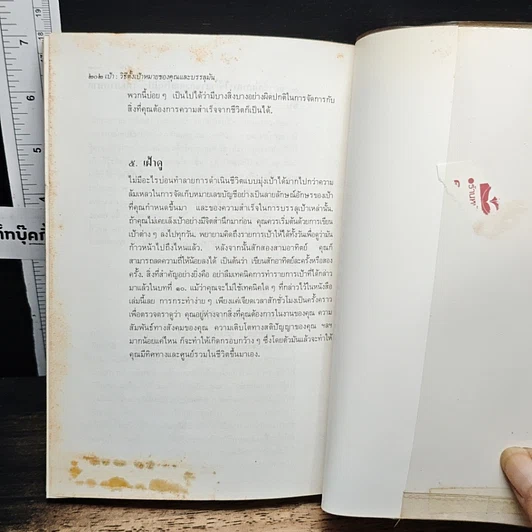 ๒๐๒ เป้า : วิธีตั้งเป้าหมายของคุณและบรรลุมัน
พวกนี้บ่อย ๆ เป็นไปได้ว่ามีบางสิ่งบางอย่างผิดปกติในการจัดการกับ
สิ่งที่คุณต้องการความสำเร็จจากชีวิตก็เป็นได้
๕. เฝ้าดู
ไม่มีอะไรบ่อนทำลายการดำเนินชีวิตแบบมุ่งเป้าได้มากไปกว่าความ
ล้มเหลวในการจัดเก็บหมายเลขบัญชีอย่างเป็นลายลักษณ์อักษรของเป้า
ที่คุณกำหนดขึ้นมา และของความสำเร็จในการบรรลุเป้าเหล่านั้น
ถ้าคุณไม่เคยเล็งเป้าอย่างมีจิตสำนึกมาก่อน คุณควรเริ่มต้นด้วยการเขียน
เป้าต่าง ๆ ลงไปทุกวัน พยายามคิดถึงรายการเป้าให้ได้ทั้งวันเพื่อดูว่ามัน
ก้าวหน้าไปถึงไหนแล้ว หลังจากนั้นสักสองสามอาทิตย์ คุณก็
สามารถลดความถี่ให้น้อยลงได้ เป็นต้นว่า เขียนสักอาทิตย์ละครั้งหรือสอง
ครั้ง สิ่งที่สำคัญอย่างยิ่งคือ อย่าลืมเทคนิคการทำรายการเป้าที่ได้กล่าว
มาแล้วในบทที่ ๑๐. แม้ว่าคุณจะไม่ใช้เทคนิคใด ๆ ที่กล่าวไว้ในหนังสือ
เล่มนี้เลย การกระทำง่าย ๆ เพียงแค่เจียดเวลาสักชั่วโมงเป็นครั้งคราว
เพื่อตรวจตราดูว่า คุณอยู่ห่างจากสิ่งที่คุณต้องการในงานของคุณ ความ
สัมพันธ์ทางสังคมของคุณ ความเติบโตทางสติปัญญาของคุณ ฯลฯ
มากน้อยแค่ไหน ก็จะทำให้เกิดกรอบกว้าง ๆ ซึ่งโดยตัวมันแล้วจะทำให้
คุณมีทิศทางและศูนย์รวมในชีวิตขึ้นมาเอง.
7
6
5
4